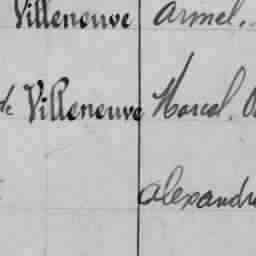 Villeneuve Armel.
de Villeneuve Marcel.
Alexandre